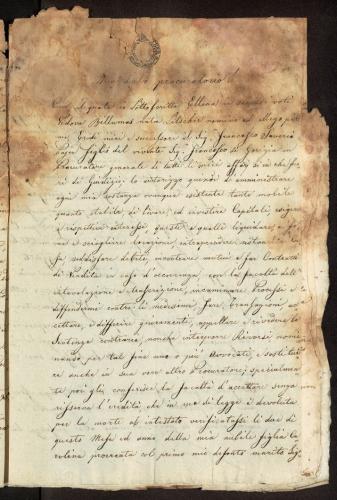 Mandato procuratorio
sottoscritta Ellena in secondi voti
Vedova Bellumas nata
mio e successore il Sig. Francesco Saverio
Figlio del vivente Sig. Francesco di Gorizia in
Procuratore generale di tutti i miei affari in che fuo-
ri di Giudizio; lo autorizzo quindi di amministrare
ogni mia sostanza ovunque esistente tanto mobile
quanto stabile, di livare, ed investire Capitali, esigere
i rispettivi interessi, questi e quelli liquidare,
e sciogliere locazioni,
soddisfare debiti, incontrare mutui e far Contratti
di Vendita in caso d'occorrenza, con la facoltà dell'
intavolazione, incaminare Processi e
diffendermi contro li medesimi, fare Transazioni, ac-
cettare, e differire giuramenti, appellare e
Sentenza contraria, nonchè interporre Ricorsi, nomi-
nando per tal fine uno o più Avvocati, e sostitui-
re anche in sua vece altro Procuratore; specialmen-
te poi gli conferisco la facoltà d'accettare senza
riserva l'eredità che in via di legge è devoluta
per la morte ab intestato verificatassi li due di
questo Mese ed anno della mia nubile figlia Ca-
rolina procreata col primo mio defonto marito Sig.